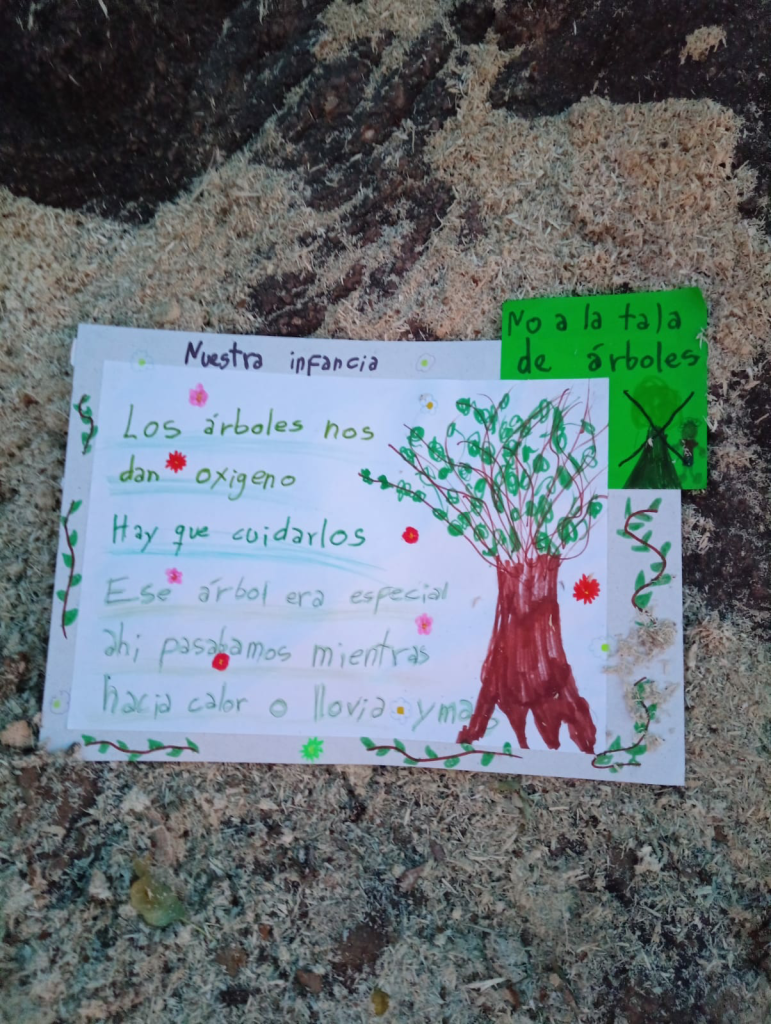 Nuestra infancia
No a la tala
de árboles
Los árboles nos
dan oxigeno
Hay que cuidarlos
Ese árbol era especial
ahi pasabamos mientras
hacia calor o llovia y mas